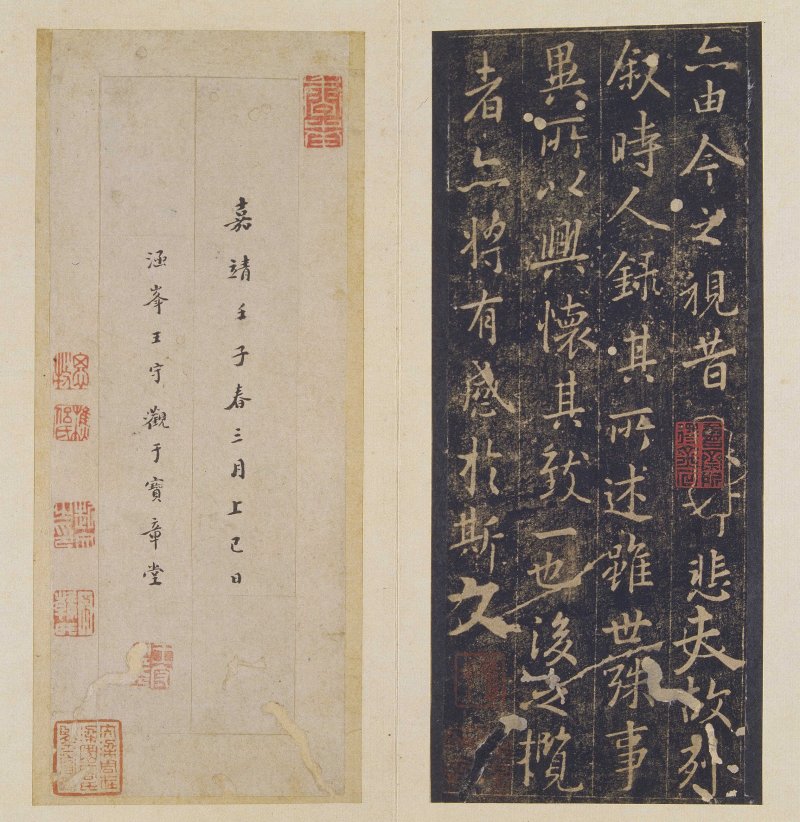 亦由今之視昔
悲夫故列
叙時人錄其所述雖世殊事
異所以興懷其致一也後之攬
者亦將有感於斯文
嘉靖壬子春三月上巳日
涵峯王守觀于寶章堂